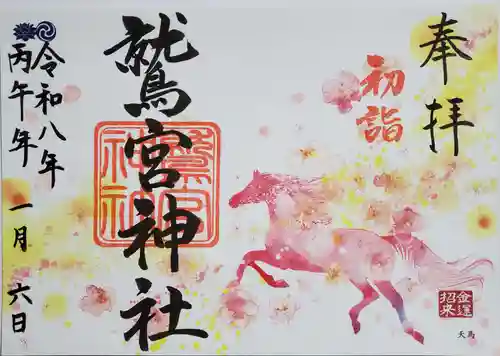 奉拝
初詣
鷲宮神社
鷲宮神社
令和八年
丙午年
一月六日
金運招来
天馬